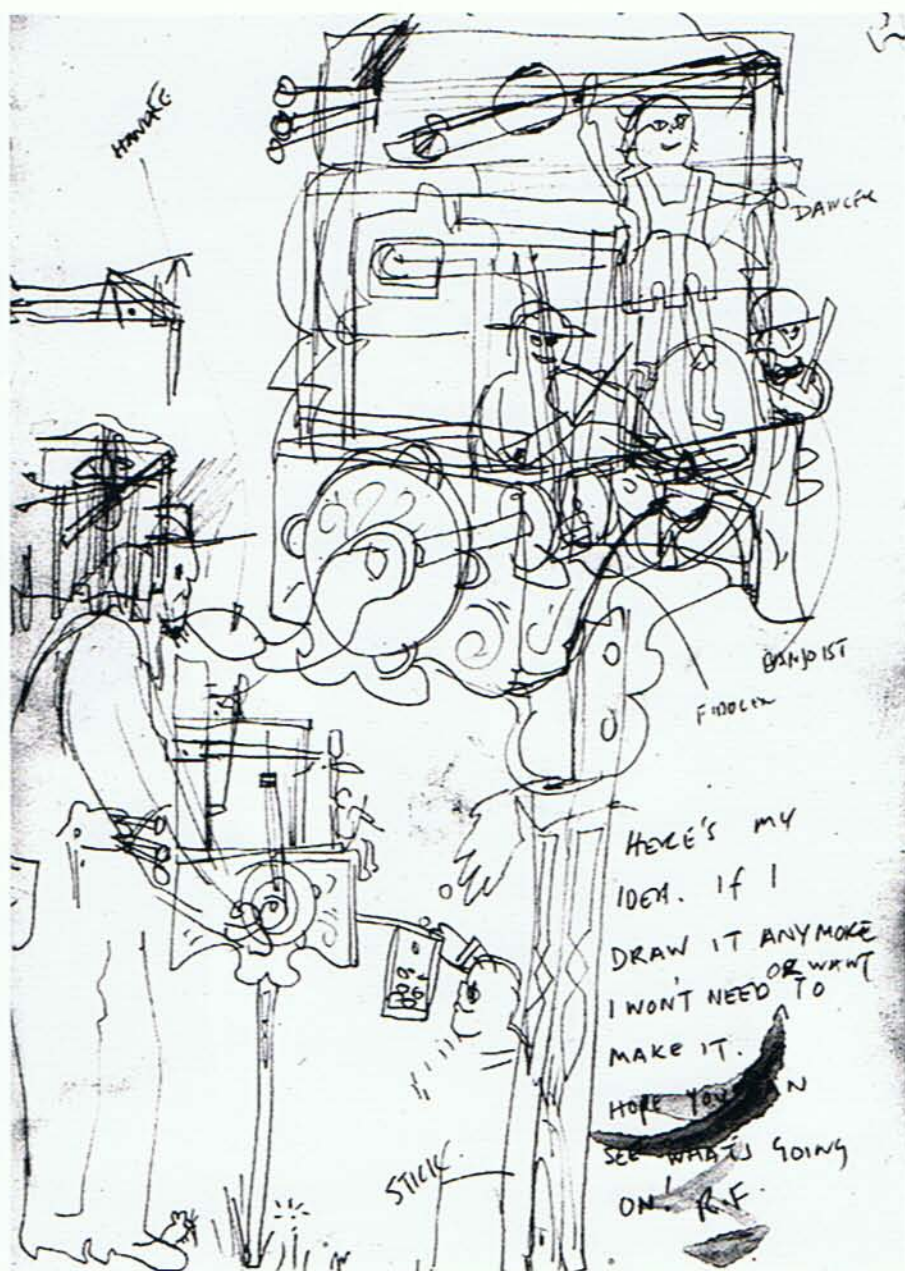 HANDLE
DANCER
BANJOIST
FIDDLER
HERE'S MY
IDEA. If I
DRAW IT ANYMORE
I WON'T NEED OR WANT TO
MAKE IT.
HOPE YOU CAN
SEE WHAT'S GOING
ON! R.F.
STICK